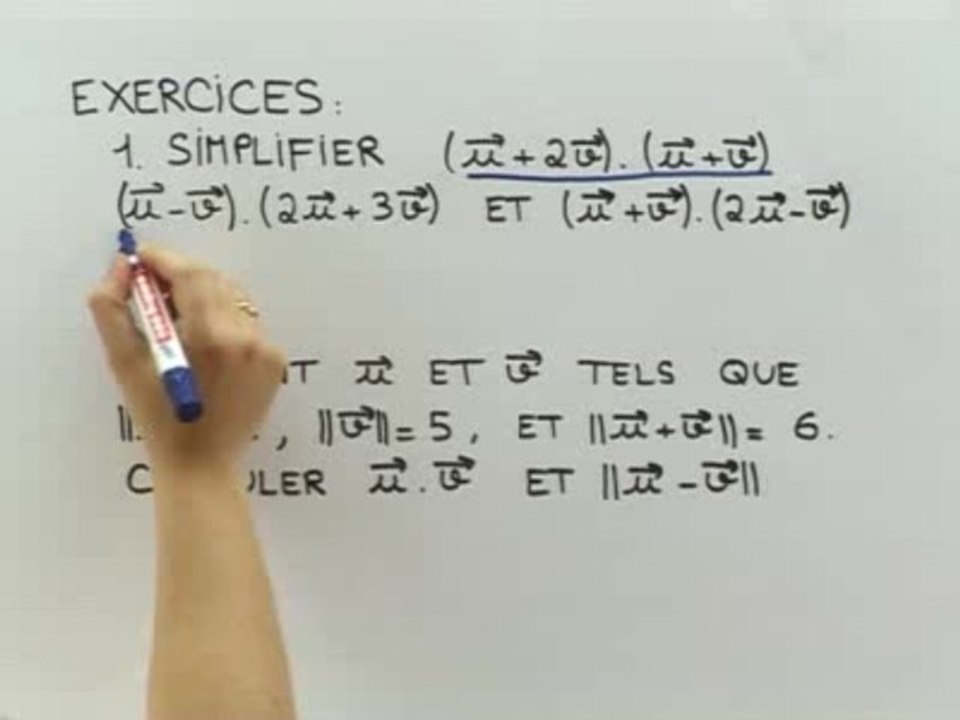 EXERCICES:
1. SIMPLIFIER (u⃗ + 2v⃗).(u⃗ + v⃗)
(u⃗ - v⃗).(2u⃗ + 3v⃗) ET (u⃗ + v⃗).(2u⃗ - v⃗)
u⃗ ET v⃗ TELS QUE
, ||v⃗|| = 5, ET ||u⃗ + v⃗|| = 6.
u⃗.v⃗ ET ||u⃗ - v⃗||